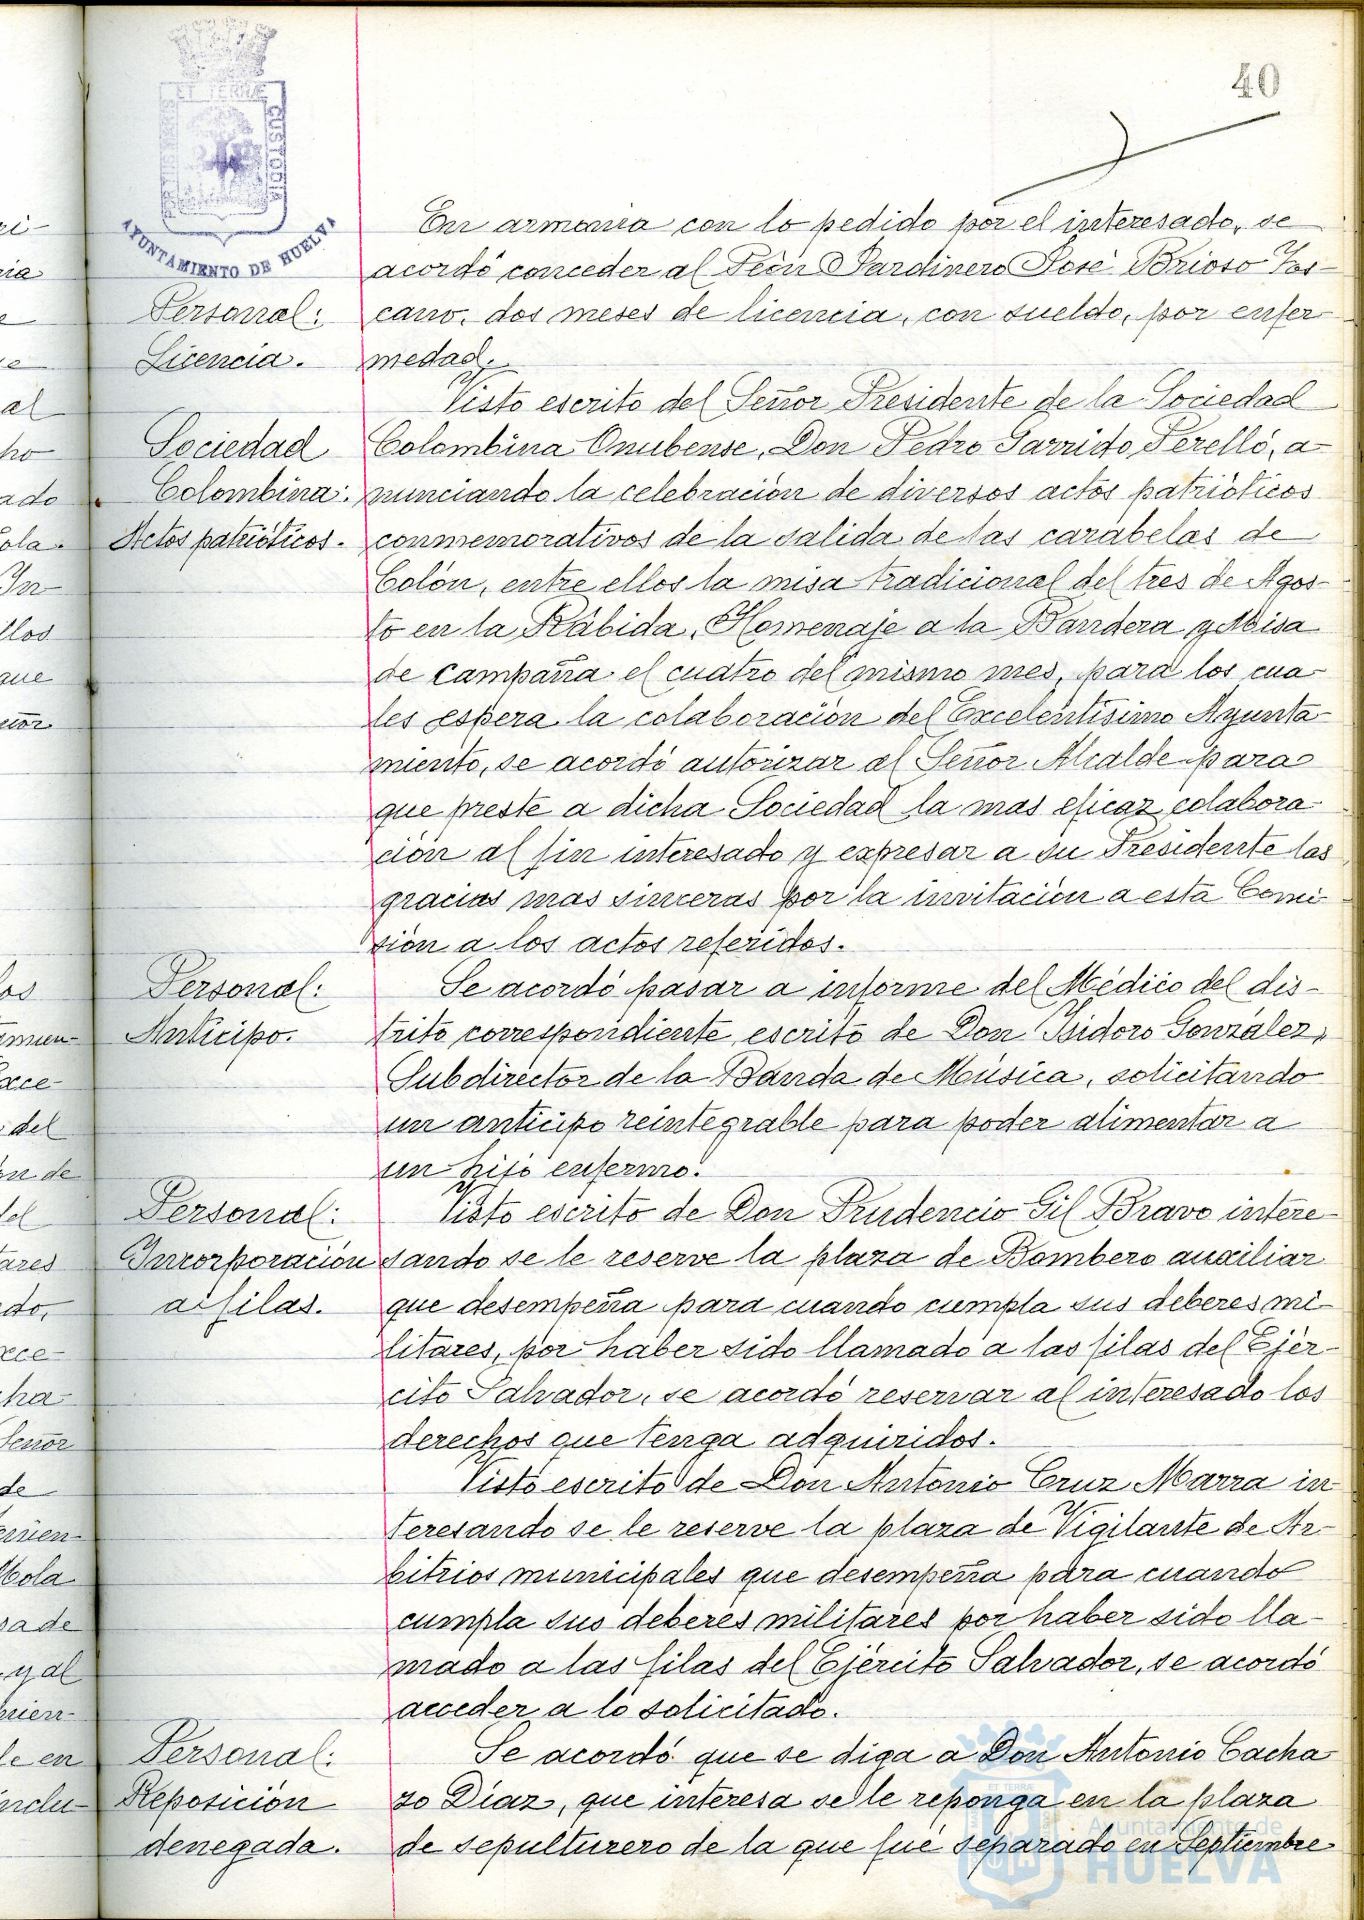 40
ET TERRÆ
PORTUS MARIS
CUSTODIA
AYUNTAMIENTO DE HUELVA
En armonia con lo pedido por el interesado, se
acordó conceder al Peón Jardinero José Brioso Tos-
Personal: cano, dos meses de licencia, con sueldo, por enfer-
Licencia. medad.
Visto escrito del Señor Presidente de la Sociedad
Sociedad Colombina Onubense, Don Pedro Garrido Perelló, a-
Colombina: nunciando la celebración de diversos actos patrióticos
Actos patrióticos. conmemorativos de la salida de las carabelas de
Colón, entre ellos la misa tradicional del tres de Agos-
to en la Rábida, Homenaje a la Bandera y Misa
de campaña el cuatro del mismo mes, para los cua-
les espera la colaboración del Excelentísimo Ayunta-
miento, se acordó autorizar al Señor Alcalde para
que preste a dicha Sociedad la mas eficaz colabora-
ción al fin interesado y expresar a su Presidente las
gracias mas sinceras por la invitación a esta Comi-
sión a los actos referidos.
Personal: Se acordó pasar a informe del Médico del dis-
Anticipo. trito correspondiente, escrito de Don Isidoro González,
Subdirector de la Banda de Música, solicitando
un anticipo reintegrable para poder alimentar a
un hijo enfermo.
Personal: Visto escrito de Don Prudencio Gil Bravo intere-
Incorporación sando se le reserve la plaza de Bombero auxiliar
a filas. que desempeña para cuando cumpla sus deberes mi-
litares, por haber sido llamado a las filas del Ejér-
cito Salvador, se acordó reservar al interesado los
derechos que tenga adquiridos.
Visto escrito de Don Antonio Cruz Marra in-
teresando se le reserve la plaza de Vigilante de Ar-
bitrios municipales que desempeña para cuando
cumpla sus deberes militares por haber sido lla-
mado a las filas del Ejército Salvador, se acordó
acceder a lo solicitado.
Personal: Se acordó que se diga a Don Antonio Cacha-
Reposición zo Díaz, que interesa se le reponga en la plaza
denegada. de sepulturero de la que fué separado en Septiembre
Ayuntamiento de
HUELVA